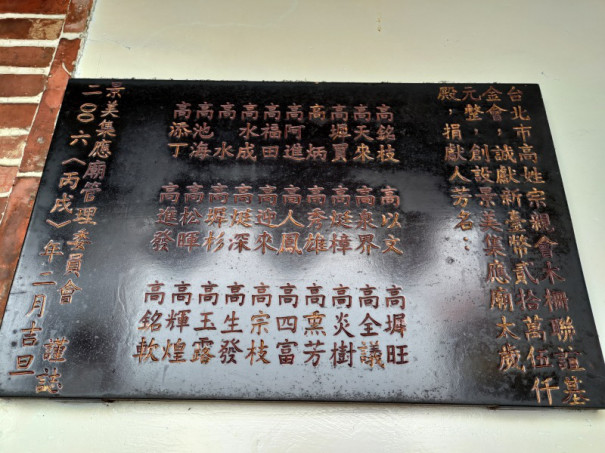 台北市高姓宗親會木柵聯誼基
金會，誠獻新臺幣貳拾萬伍仟
元整，創設景美集應廟太歲
殿；捐獻人芳名：
高銘枝
高天來
高　買
高炳
高阿進
高福田
高水成
高水
高池海
高添丁
高以文
高東界
高　樟
高　雄
高人鳳
高迎來
高　深
高墀杉
高松暉
高進發
高墀旺
高全議
高炎樹
高熏芳
高四富
高宗枝
高生發
高玉露
高輝煌
高銘軟
景美集應廟管理委員會 謹誌
二〇〇六《丙戌》年二月吉旦